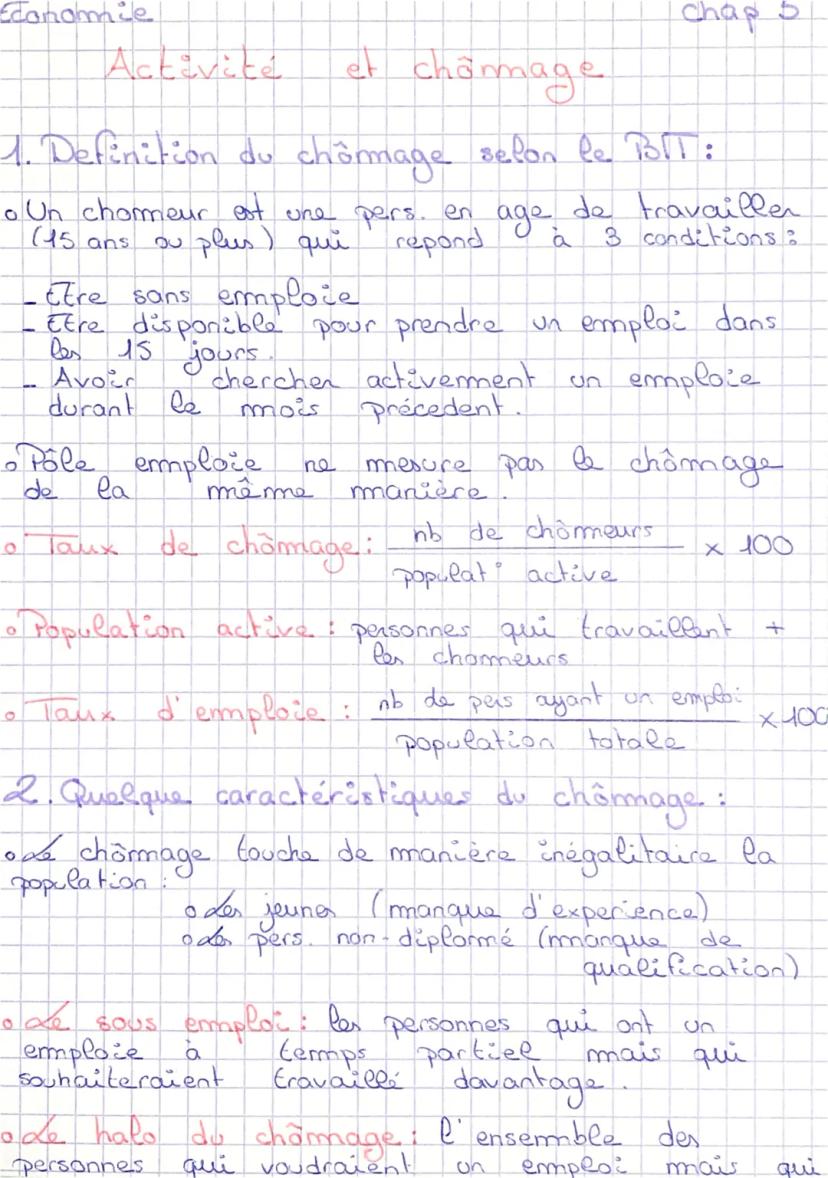 Economie chap 5
Activité et chômage
1. Definition du chômage selon le BIT :
Un chomeur est une pers. en age de travailler
(15 ans ou plus) qui repond à 3 conditions :
- Etre sans emploie
- Etre disponible pour prendre un emploi dans
les 15 jours.
- Avoir chercher activement un emploie
durant le mois précedent.
Pôle emploie ne mesure pas le chômage
de la même manière.
Taux de chômage : nb de chômeurs
x 100
populat° active
Population active : personnes qui travaillent +
les chomeurs
Taux d'emploie : nb de pers ayant un emploi
x 100
population totale
2. Quelque caractéristiques du chômage :
Le chômage touche de manière inégalitaire la
population :
Les jeunes (manque d'experience)
Les pers. non-diplomé (manque de
qualification)
Le sous emploi : les personnes qui ont un
emploie à temps partiel mais qui
souhaiteraient travaillé davantage.
Le halo du chômage : l'ensemble des
personnes qui voudraient un emploi mais qui